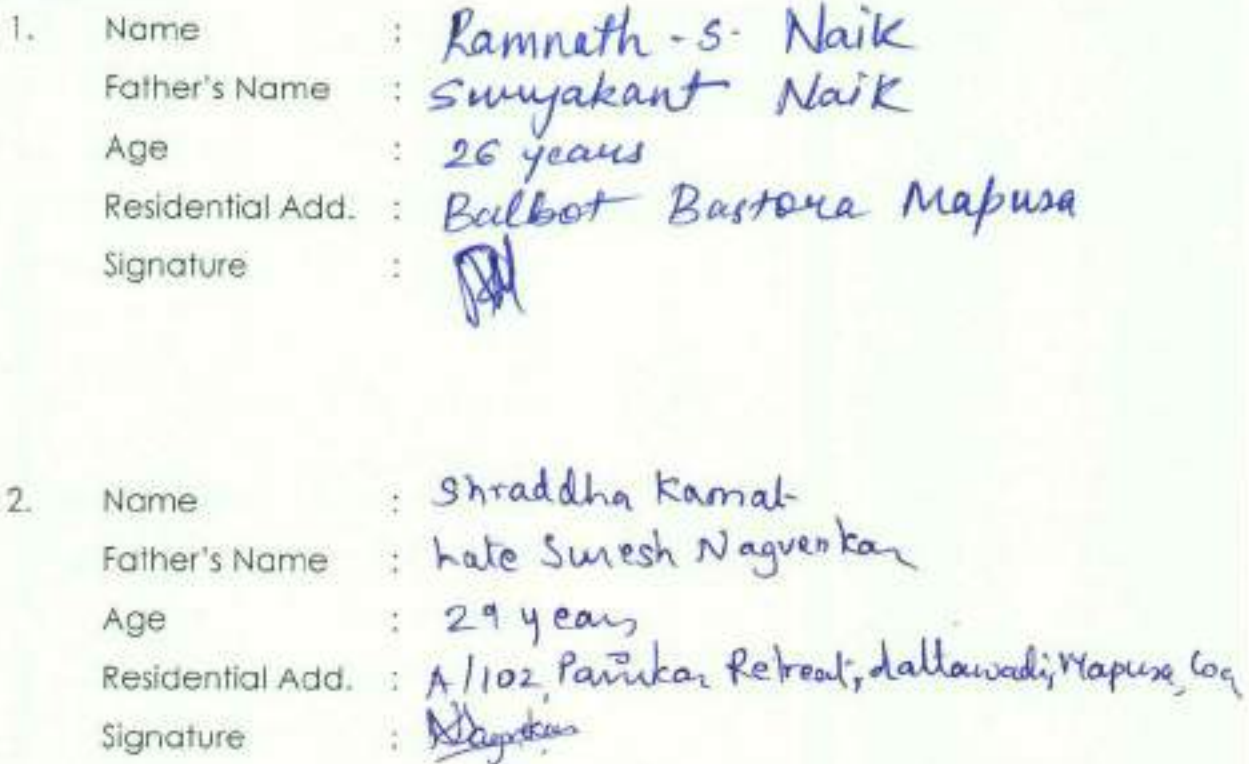 1. Name : Ramnath - S. Naik
Father's Name : Suryakant Naik
Age : 26 years
Residential Add. : Balbot Bastora Mapusa
Signature :
2. Name : Shraddha Kamat
Father's Name : Late Suresh Nagvenkar
Age : 29 years
Residential Add. : A/102, Retreat, dattawadi, Mapusa, Goa
Signature :